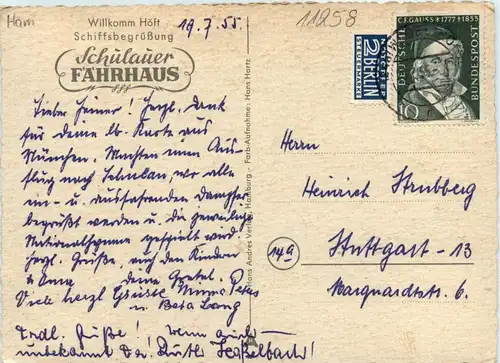 Ham
Willkomm Höft
Schiffsbegrüßung
Schulauer
FÄHRHAUS
19.7.55.
11258
Lieber Heiner! Herzl. Dank
für Deine lb. Karte aus
München. Machten einen Aus-
flug nach Schulau, wo alle
ein- u. ausfahrenden Dampfer
begrüßt werden u. die jeweilige
Nationalhymne gespielt wird.
Herzl. Grüße, auch den Kindern
& Anna deine Gretel.
Viele herzl Grüsse Minna
u. Beta Lang
Hans Andres Verlag, Hamburg - Farb-Aufnahme: Hans Hartz
NOTOPFER
2 BERLIN
STEUERMARKE
C.F.GAUSS * 1777 † 1855
DEUTSCHE
BUNDESPOST
10
Herrn
Heinrich Strubberg
(14a) Stuttgart - 13
Marquardtstr. 6.
Grüße! Wenn auch
unbekannt